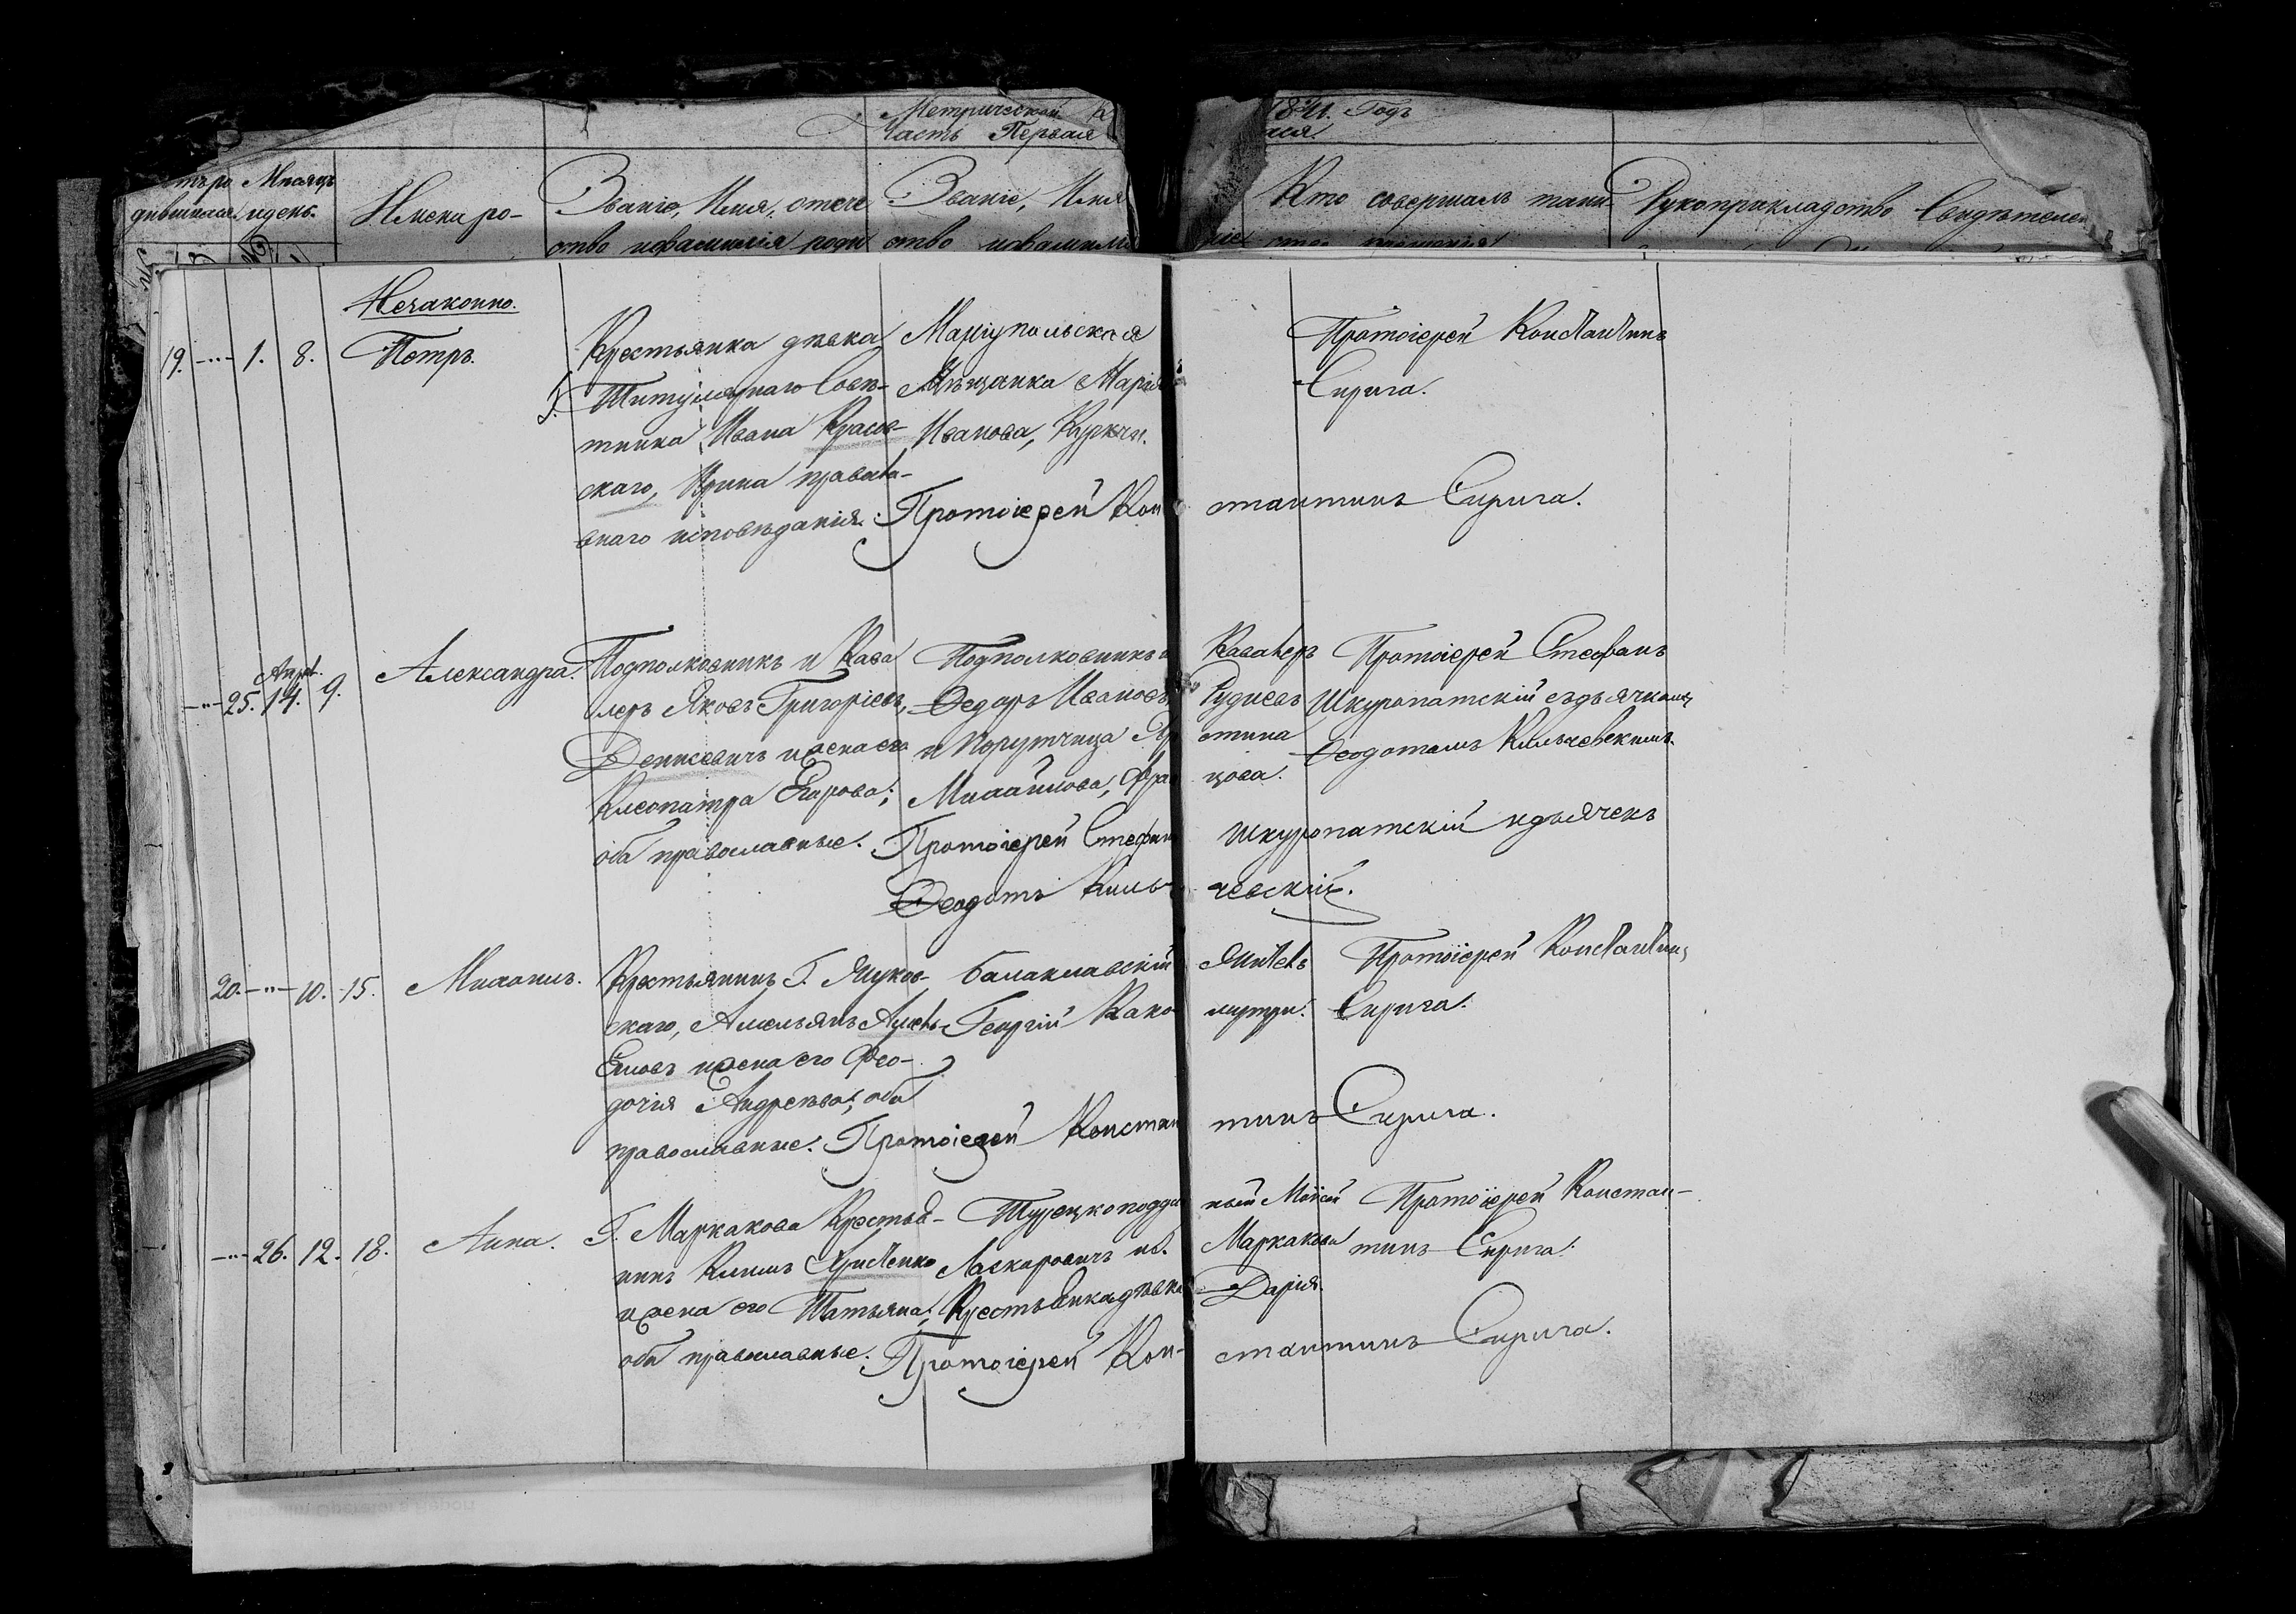 Метрической
Часть Первая
1841. Годъ
Мѣсяцъ
и день.
Имена ро-
Званіе, Имя, отече
ство и фамилія роди
Званіе, Имя
ство и фамилія
Кто совершалъ таин-
Рукоприкладство свидѣтелей
Незаконно.
19. -"- 1. 8. Петръ.
Крестьянка дѣвка
Г. Титулярнаго Совѣ-
тника Ивана Красов-
скаго, Ирина правосла-
внаго исповѣданія.
Маріупольская
Мѣщанка Марія
Иванова, Куркчи.
Протоіерей Константинъ
Сирига.
Протоіерей Константинъ Сирига.
Апрѣл.
-"- 25. 14. 9. Александра.
Подполковникъ и Кава
леръ Яковъ Григорьевъ,
Денисевичъ и жена его
Клеопатра Егорова;
оба православные.
Подполковникъ и Кавалеръ
Ѳедоръ Ивановъ, Рудневъ
и Порутчица
Михайлова,
Протоіерей Стефанъ
Шкуропатскій съ дьячкомъ
Ѳеодотомъ Кильчевскимъ.
Протоіерей Стефанъ Шкуропатскій и дьячекъ
Ѳеодотъ Кильчевскій.
20. -"- 10. 15. Михаилъ.
Крестьянинъ Г. Жуков-
скаго, Амельянъ Амель-
яновъ и жена его Ѳео-
досія Андреева; оба
православные.
Балаклавскій житель
Георгій
Протоіерей Константинъ
Сирига.
Протоіерей Константинъ Сирига.
-"- 26. 12. 18. Анна.
Г. Маркакова Крестья-
нинъ Климъ Христенко
и жена его Татьяна;
оба православные.
Турецкоподданный Моисей
Ласкаровичъ Маркаковъ
Крестьянка дѣвка Дарія.
Протоіерей Констан-
тинъ Сирига.
Протоіерей Константинъ Сирига.